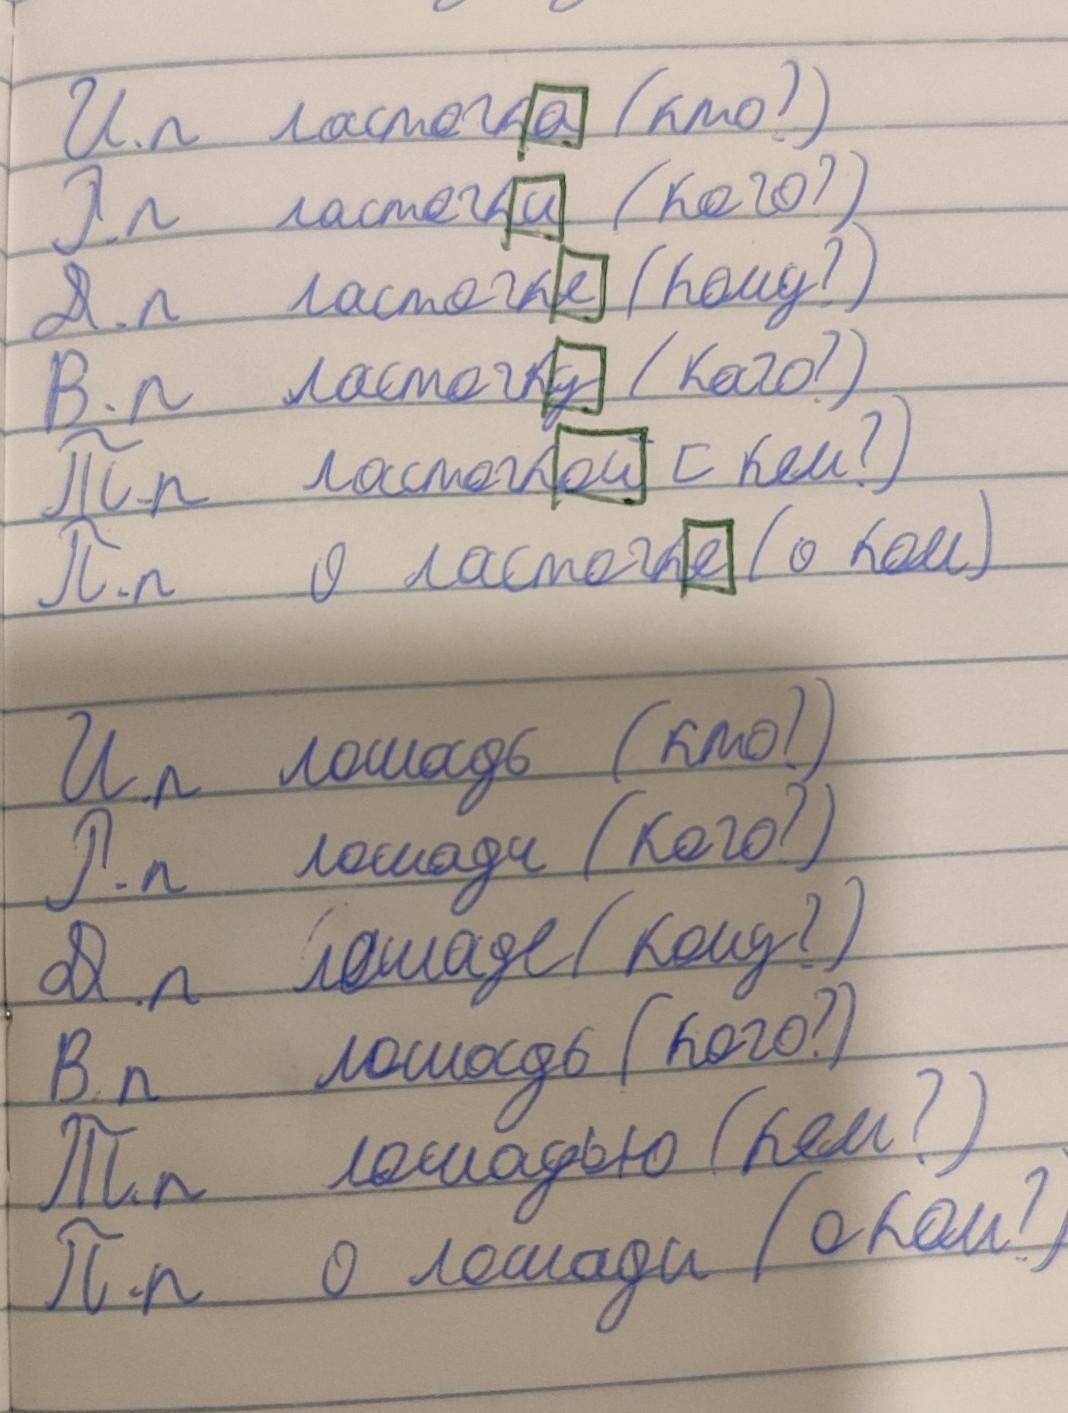 И.п ласточка (кто?)
Р.п ласточки (кого?)
Д.п ласточке (кому?)
В.п ласточку (кого?)
Т.п ласточкой с кем?)
П.п о ласточке (о ком)
И.п лошадь (кто?)
Р.п лошади (кого?)
Д.п лошаде (кому?)
В.п лошадь (кого?)
Т.п лошадью (кем?)
П.п о лошади (о ком?)